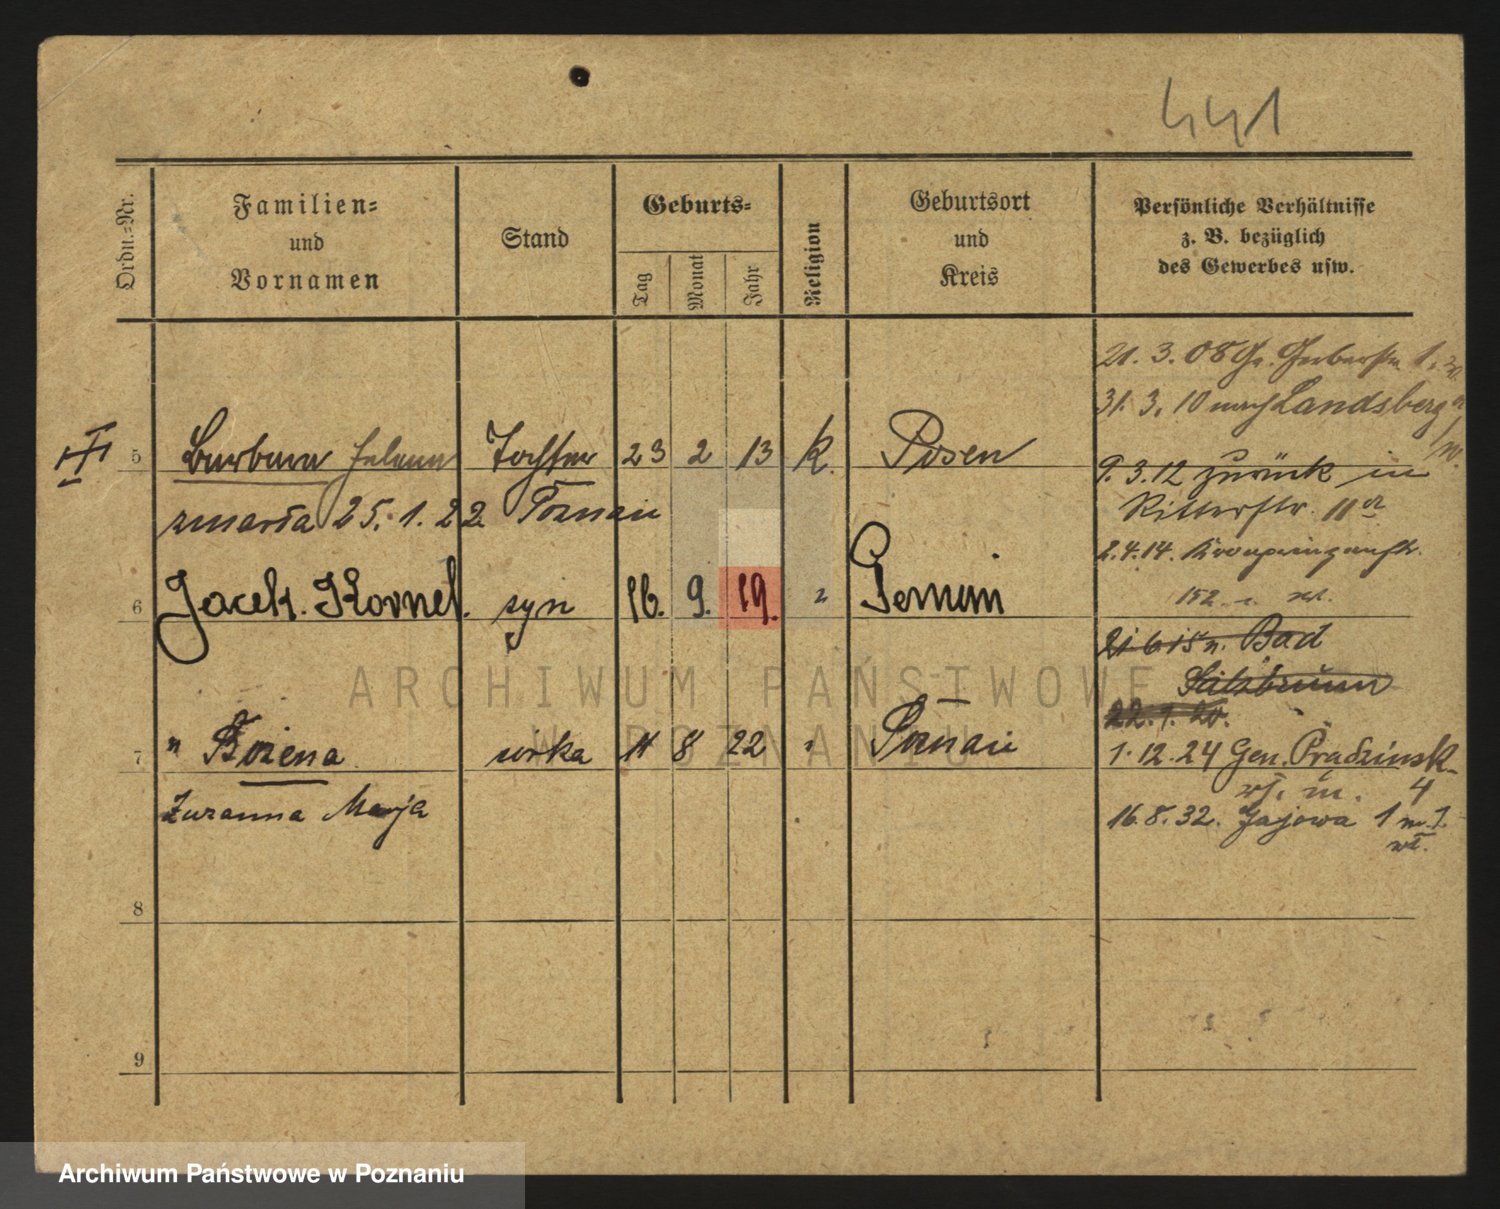 441
Ordn.-Nr.
Familien-
und
Vornamen
Stand
Geburts-
Tag
Monat
Jahr
Religion
Geburtsort
und
Kreis
Persönliche Verhältnisse
z. B. bezüglich
des Gewerbes usw.
21. 3. 08 Gr. Gerberstr. 1.
31. 3. 10 nach Landsberg a/W.
5 Barbara Helena Tochter 23 2 13 k. Posen
zmarła 25. 1. 22 Poznań
9. 3. 12 zurück in
Ritterstr. 11a
2. 4. 14. Kronprinzenstr.
152
6 Jacek. Kornel. syn 16. 9. 19. "
21. 6. 15 n. Bad
Salzbrunn
22. 1. 20.
7 " Bożena córka 11 8 22 " Poznań
Zuzanna Marja
1. 12. 24 Gen. Prądzińsk-
4
16. 8. 32. Gajowa 1
8
9
ARCHIWUM PAŃSTWOWE
W POZNANIU
Archiwum Państwowe w Poznaniu